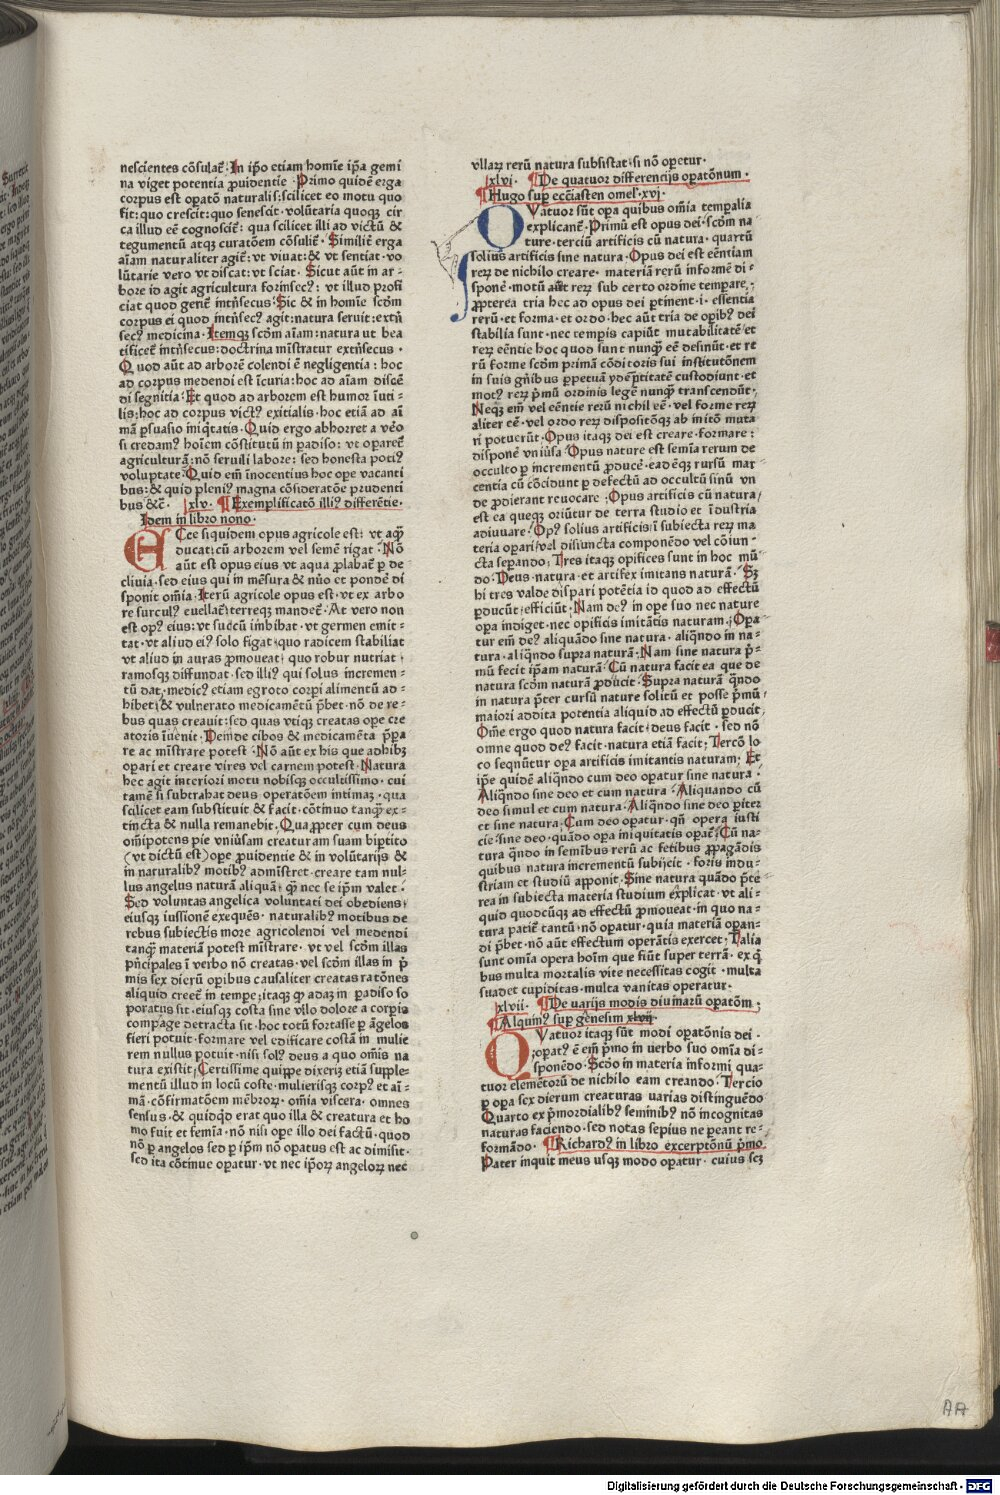 nescientes cõsulat̃. In ip̃o etiam homĩe ip̃a gemi
na viget potentia ꝓuidentie. Primo quidẽ erga
corpus est oꝑatõ naturalis: scilicet eo motu quo
fit: quo crescit: quo senescit. volũtaria quoqꝫ cir
ca illud eẽ cognoscit̃: qua scilicet illi ad victũ &
tegumentũ atqꝫ curatõem cõsulit̃. Similit̃ erga
aĩam naturaliter agit̃: vt viuat: & vt sentiat. vo
lũtarie vero vt discat: vt sciat. Sicut aũt in ar-
bore id agit agricultura forinsecꝰ: vt illud profi
ciat quod gerit̃ intrĩsecus: Sic & in homĩe scďm
corpus ei quod intrĩsecꝰ agit: natura seruit: extrĩ
secꝰ medicina. Itemqꝫ scďm aĩam: natura vt bea
tificet̃ intrĩsecus: doctrina mĩstratur extrĩsecus.
Quod aũt ad arborẽ colendi ẽ negligentia: hoc
ad corpus medendi est ĩcuria: hoc ad aĩam discẽ
di segnitia. Et quod ad arborem est humor ĩuti-
lis: hoc ad corpus victꝰ exitialis. hoc etiã ad aĩ
mã ꝑsuasio iniq̃tatis. Quid ergo abhorret a vẽo
si credamꝰ hoĩem cõstitutũ in ꝑadiso: vt oꝑaret̃
agriculturã: nõ seruili labore: sed honesta potiꝰ
voluptate. Quid em̃ ĩnocentius hoc ope vacanti
bus: & quid pleniꝰ magna cõsideratõe prudenti
bus &c̃. xlv. ¶ Exemplificatõ illiꝰ differẽtie.
Idem in libro nono.
ECce siquidem opus agricole est: vt aqᷓ
ducat: cũ arborem vel semẽ rigat. Nõ
aũt est opus eius vt aqua ꝓlabat̃ ꝑ de
cliuia. sed eius qui in mẽsura & nũo et pondẽ di
sponit om̃ia. Iterũ agricole opus est. vt ex arbo
re surculꝰ euellat̃: terreqꝫ mandet̃. At vero non
est opꝰ eius: vt succũ imbibat. vt germen emit-
tat. vt aliud eiꝰ solo figat. quo radicem stabiliat
vt aliud in auras ꝓmoueat. quo robur nutriat
ramosqꝫ diffundat. sed illiꝰ qui solus incremen-
tũ dat. medicꝰ etiam egroto corꝑi alimentũ ad-
hibet. & vulnerato medicamẽtũ p̃bet. nõ de re-
bus quas creauit: sed quas vtiqꝫ creatas ope cre
atoris ĩuẽnit. Deinde cibos & medicamẽta p̃ꝑa
re ac mĩstrare potest. Nõ aũt ex his que adhibꝫ
oꝑari et creare vires vel carnem potest. Natura
hec agit interiori motu nobisqꝫ occultissimo. cui
tamẽ si subtrahat deus oꝑatõem intimaꝫ. qua
scilicet eam substituit & facit. cõtinuo tanqᷓ ex-
tincta & nulla remanebit. Quaꝓpter cum deus
om̃ipotens pie vniũsam creaturam suam biꝑtito
(vt dictũ est) ope ꝓuidentie & in volũtarijs &
in naturalibꝰ motibꝰ admĩstret. creare tam nul-
lus angelus naturã aliquã. qᷓ nec se ip̃m valet.
Sed voluntas angelica voluntati dei obediens.
eiusqꝫ iussionẽ exequẽs. naturalibꝰ motibus de
rebus subiectis more agricolendi vel medendi
tanqᷓ materiã potest mĩstrare. vt vel scďm illas
pñcipales ĩ verbo nõ creatas. vel scďm illas in p̃
mis sex dierũ oꝑibus causaliter creatas ratõnes
aliquid creet̃ in tempe: itaqꝫ ꝙ adaꝫ in ꝑadiso so
poratus sit. eiusqꝫ costa sine vllo dolore a corꝑis
compage detracta sit. hoc totũ fortasse ꝑ ãgelos
fieri potuit. formare vel edificare costã in mulie
rem nullus potuit. nisi solꝰ deus a quo om̃is na
tura existit. Certissime quippe dixeriꝫ etiã supple-
mentũ illud in locũ coste. mulierisqꝫ corpꝰ et aĩ-
mã. cõfirmatõem mẽbroꝝ. om̃ia viscera. omnes
sensus. & quidqᷓd erat quo illa & creatura et ho
mo fuit et femĩa. nõ nisi ope illo dei factũ. quod
nõ ꝑ angelos sed ꝑ ip̃m nõ oꝑatus est ac dimisit.
sed ita cõtinue oꝑatur. vt nec ip̃oꝝ angeloꝝ nec
vllaꝝ rerũ natura subsistat. si nõ oꝑetur.
xlvi. ¶ De quatuor differencijs oꝑatõnum.
¶ Hugo sup̃ ecc̃iasten omel. xvj.
QVatuor sũt oꝑa quibus om̃ia tempalia
explicant̃. Primũ est opus dei. scďm na
ture. terciũ artificis cũ natura. quartũ
solius artificis sine natura. Opus dei est eẽntiam
reꝝ de nichilo creare. materiã rerũ informẽ di-
sponẽ. motũ aũt reꝝ sub certo ordine tempare.
ꝓpterea tria hec ad opus dei ꝑtinent. i. essentia
rerũ. et forma. et ordo. hec aũt tria de oꝑibꝰ dei
stabilia sunt. nec tempis capiũt mutabilitatẽ. et
reꝝ eẽntie hoc quod sunt nunqᷓ eẽ desinũt. et re
rũ forme scďm primã cõditoris sui institutõnem
in suis gñibus ꝑpetuã ydẽptitatẽ custodiunt. et
motꝰ reꝝ p̃mũ ordinis legẽ nunqᷓ transcendũt.
Neqꝫ em̃ vel eẽntie rerũ nichil eẽ. vel forme reꝝ
aliter eẽ. vel ordo reꝝ dispositõqꝫ ab initõ muta
ri potuerũt. Opus itaqꝫ dei est creare. formare:
disponẽ vniũsa. Opus nature est semĩa rerum de
occulto ꝑ incrementũ ꝓducẽ. eadẽqꝫ rursũ mar-
centia cũ cõcidunt ꝑ defectũ ad occultũ sinũ vn
de ꝓdierant reuocare. Opus artificis cũ natura
est ea queqꝫ oriũtur de terra studio et ĩdustria
adiuuare. Opꝰ solius artificis ĩ subiecta reꝝ ma
teria oꝑari vel disiuncta componẽdo vel cõiun-
cta seꝑando. Tres itaqꝫ opifices sunt in hoc mũ
do. Deus. natura. et artifex imitans naturã. Sꝫ
hi tres valde dispari potẽtia id quod ad effectũ
ꝑducũt efficiũt. Nam deꝰ in ope suo nec nature
oꝑa indiget. nec opificis imitãtis naturam. Oꝑa
tur em̃ deꝰ aliquãdo sine natura. aliqñdo in na-
tura. aliqñdo supra naturã. Nam sine natura p̃-
mũ fecit ip̃am naturã. Cũ natura facit ea que de
natura scďm naturã ꝓducit. Supra naturã qñdo
in natura p̃ter cursũ nature solitũ et posse p̃mũ
maiori addita potentia aliquid ad effectũ ꝓducit
Om̃e ergo quod natura facit. deus facit. sed nõ
omne quod deꝰ facit. natura etiã facit. Tercõ lo
co seqñtur oꝑa artificis imitantis naturam. Et
ip̃e quidẽ aliqñdo cum deo oꝑatur sine natura.
Aliqñdo sine deo et cum natura. Aliquando cũ
deo simul et cum natura. Aliqñdo sine deo ꝑiter
et sine natura. Cum deo oꝑatur. qñ opera iusti
cie. sine deo. quãdo oꝑa iniquitatis oꝑat̃. Cũ na-
tura qñdo in semĩbus rerũ ac fetibus ꝓpagãdis
quibus natura incrementũ subijcit. foris indu-
striam et studiũ apponit. Sine natura quãdo p̃te-
rea in subiecta materia studium explicat. vt ali-
quid quodcũqꝫ ad effectũ ꝓmoueat. in quo na-
tura patit̃ tantũ. nõ oꝑatur. quia materiã oꝑan-
di p̃bet. nõ aũt effectum operãtis exercet. Talia
sunt omĩa opera hoĩm que fiũt super terrã. ex qᷓ
bus multa mortalis vite necessitas cogit. multa
suadet cupiditas. multa vanitas operatur.
xlvii. ¶ De varijs modis diuinarũ oꝑatõm.
¶ Alquinꝰ sup̃ gẽnesim xlvij.
QVatuor itaqꝫ sũt modi oꝑatõnis dei.
oꝑatꝰ ẽ em̃ p̃mo in verbo suo omĩa di-
sponẽdo. Scďo in materia informi qua-
tuor elementorũ de nichilo eam creando. Tercio
ꝑ oꝑa sex dierum creaturas varias distinguẽdo
Quarto ex p̃mordialibꝰ seminibꝰ nõ incognitas
naturas faciendo. sed notas sepius ne ꝑeant re-
formãdo. ¶ Richardꝰ in libro exceptõnũ p̃mo
Pater inquit meus usqꝫ modo oꝑatur. cuius scꝫ
AA
Digitalisierung gefördert durch die Deutsche Forschungsgemeinschaft · DFG